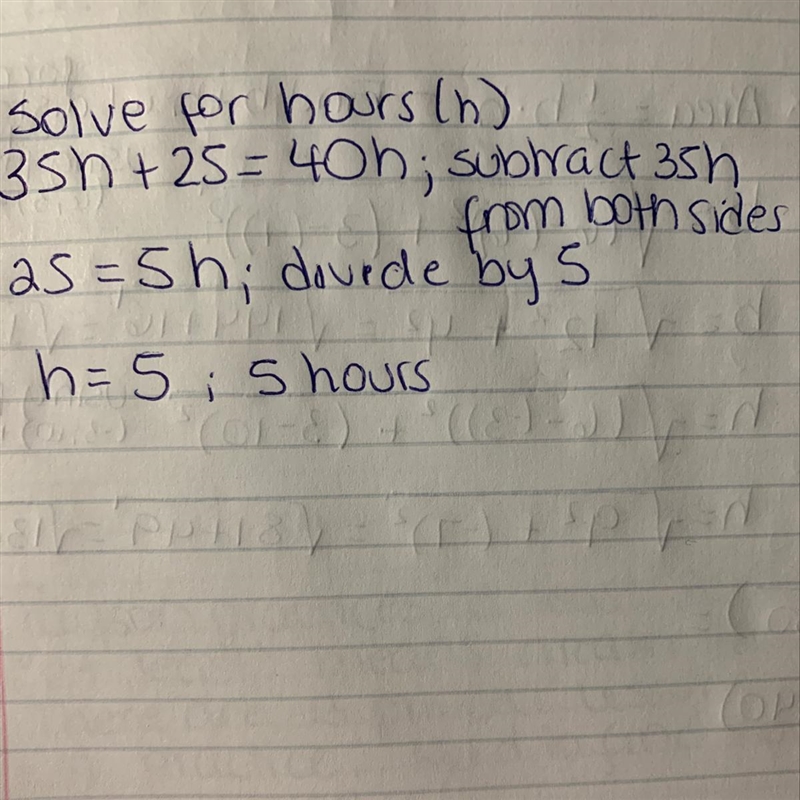 solve for hours (h)
35h + 25 = 40h; subtract 35h
from both sides
25 = 5h; divide by 5
h = 5 ; 5 hours